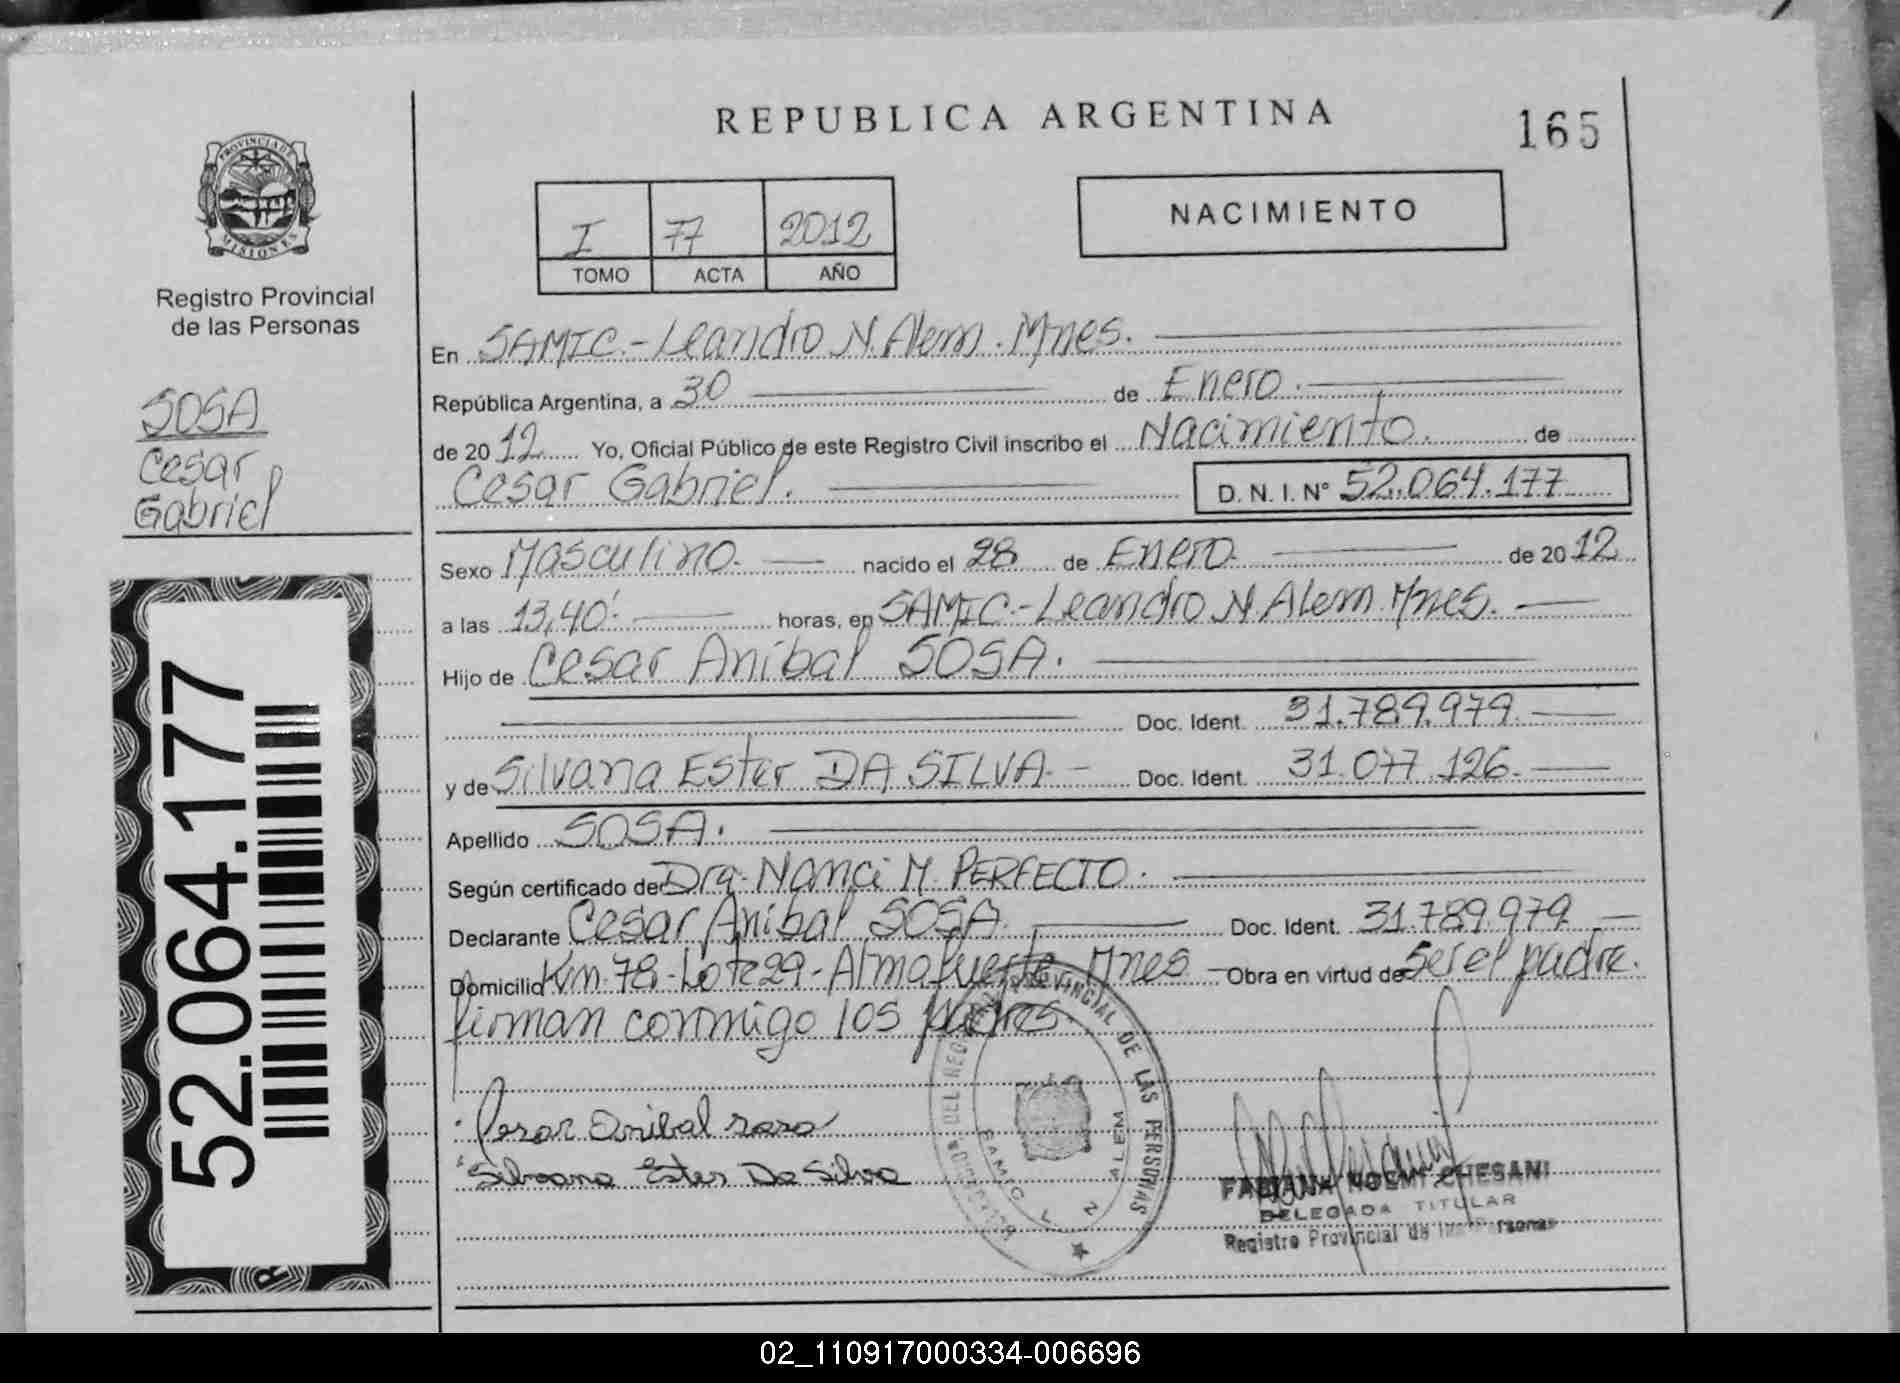 REPUBLICA ARGENTINA
165
PROVINCIA DE
MISIONES
Registro Provincial
de las Personas
I 77 2012
TOMO ACTA AÑO
NACIMIENTO
SOSA
Cesar
Gabriel
En SAMIC.-Leandro N. Alem. Mnes.
República Argentina, a 30 de Enero.
de 2012 Yo, Oficial Público de este Registro Civil inscribo el Nacimiento. de
Cesar Gabriel. D. N. I. Nº 52.064.177
Sexo Masculino. nacido el 28 de Enero. de 2012
a las 13,40' horas, en SAMIC.-Leandro N. Alem. Mnes.
Hijo de Cesar Anibal SOSA.
Doc. Ident. 31.789.979.
y de Silvana Ester DA SILVA.- Doc. Ident. 31.077.126.
Apellido SOSA.
Según certificado de Dra. Nanci M. PERFECTO.
Declarante Cesar Anibal SOSA. Doc. Ident. 31.789.979
Domicilio Km. 78-Lote 29-Almafuerte Mnes - Obra en virtud de Ser el padre.
firman conmigo los padres.
Cesar Anibal Sosa
Silvana Ester Da Silva
PROVINCIAL DE LAS PERSONAS
SAMIC L N ALEM
FABIANA NOEMI CHESANI
DELEGADA TITULAR
Registro Provincial de las Personas
52.064.177
02_110917000334-006696